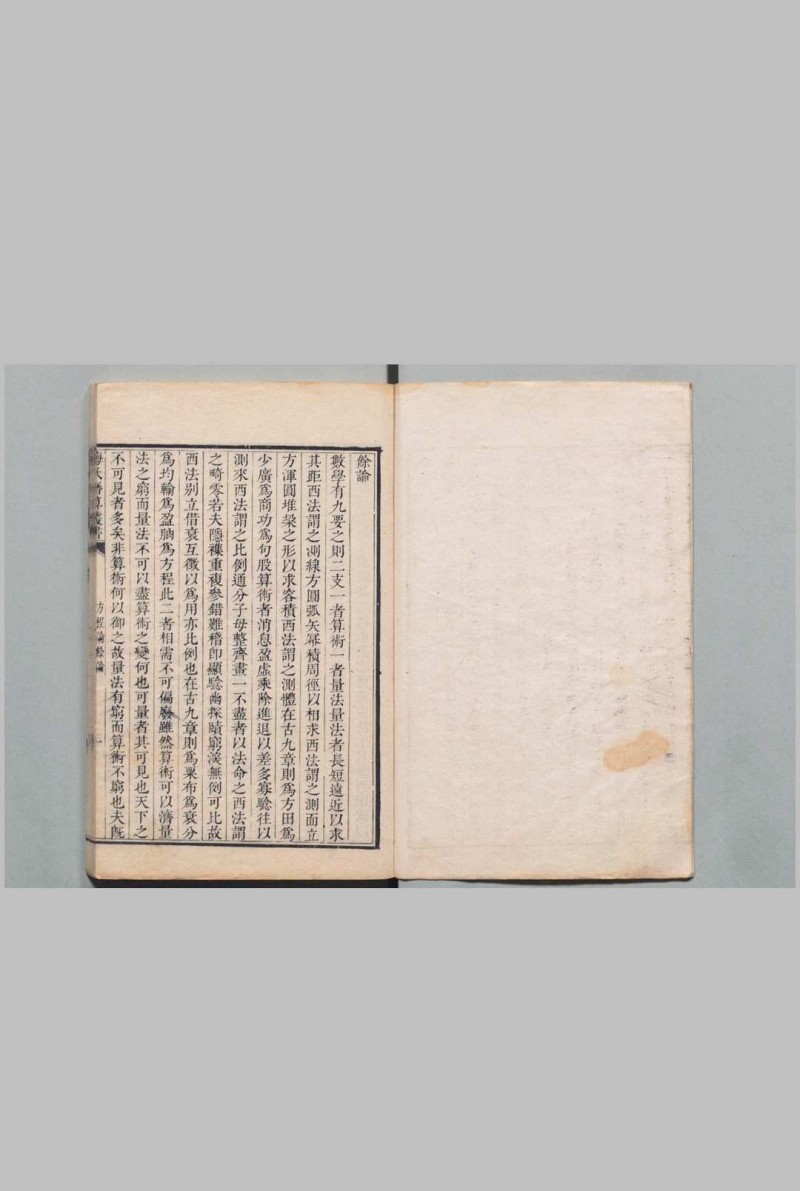 餘論
數學有九要之則二支一者算術一者量法量法者長短遠近以求
其距西法謂之測線方圓弧矢冪積周徑以相求西法謂之測面立
方渾圓堆垜之形以求容積西法謂之測體在古九章則爲方田爲
少廣爲商功爲句股算術者消息盈虛乘除進退以差多寡驗往以
測來西法謂之比例通分子母整齊畫一不盡者以法命之西法謂
之畸零若夫隱襍重複參錯難稽卽顯驗幽探賾窮深無例可比故
西法別立借衰互徵以爲用亦比例也在古九章則爲粟布爲衰分
爲均輸爲盈朒爲方程此二者相需不可偏廢雖然算術可以濟量
法之窮而量法不可以盡算術之變何也可量者其可見也天下之
不可見者多矣非算術何以御之故量法有窮而算術不窮也夫旣
方程論餘論
一